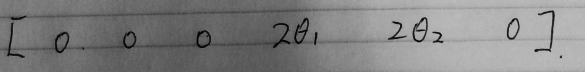 [ 0. 0 0 2θ₁ 2θ₂ 0 ].